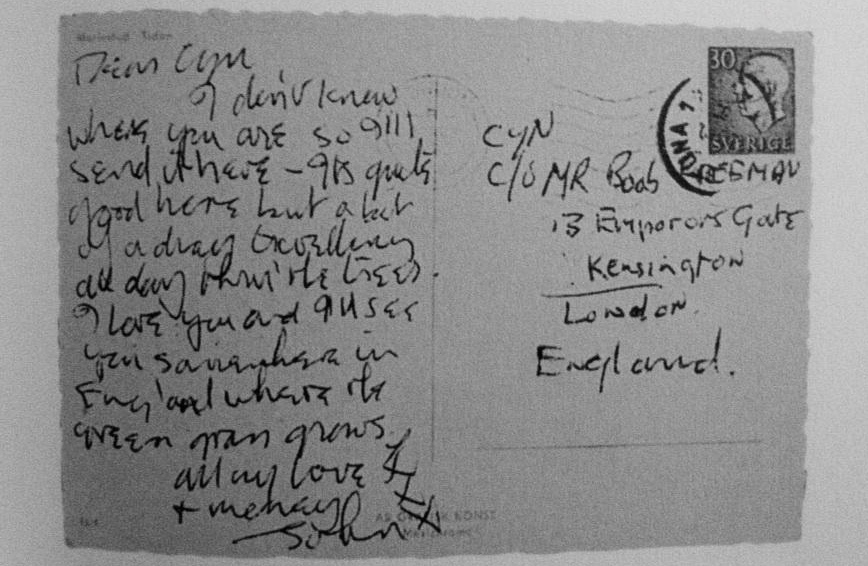 Mariestad. Tidan
Dear Cyn
I don't know
where you are so I'll
send it here - It's quite
good here but a bit
of a drag travelling
all day thru' the trees.
I love you and I'll see
you somewhere in
England where the
green grass grows.
all my love XX
+ money X
John X
30
SVERIGE
CYN
C/O MR Bob FREEMAN
13 Emperors Gate
Kensington
London.
England.
KONST